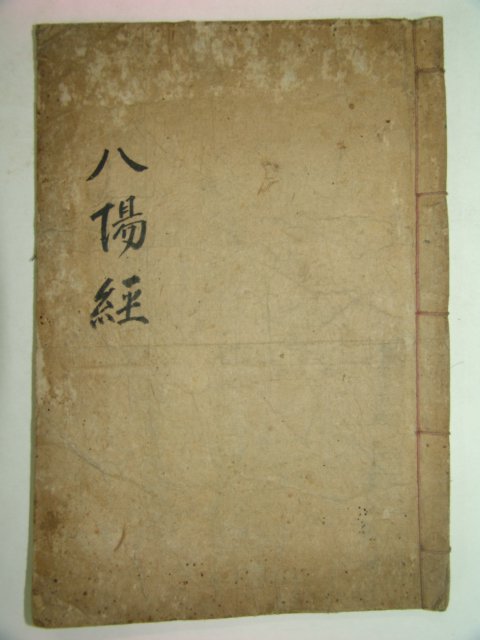 八陽經